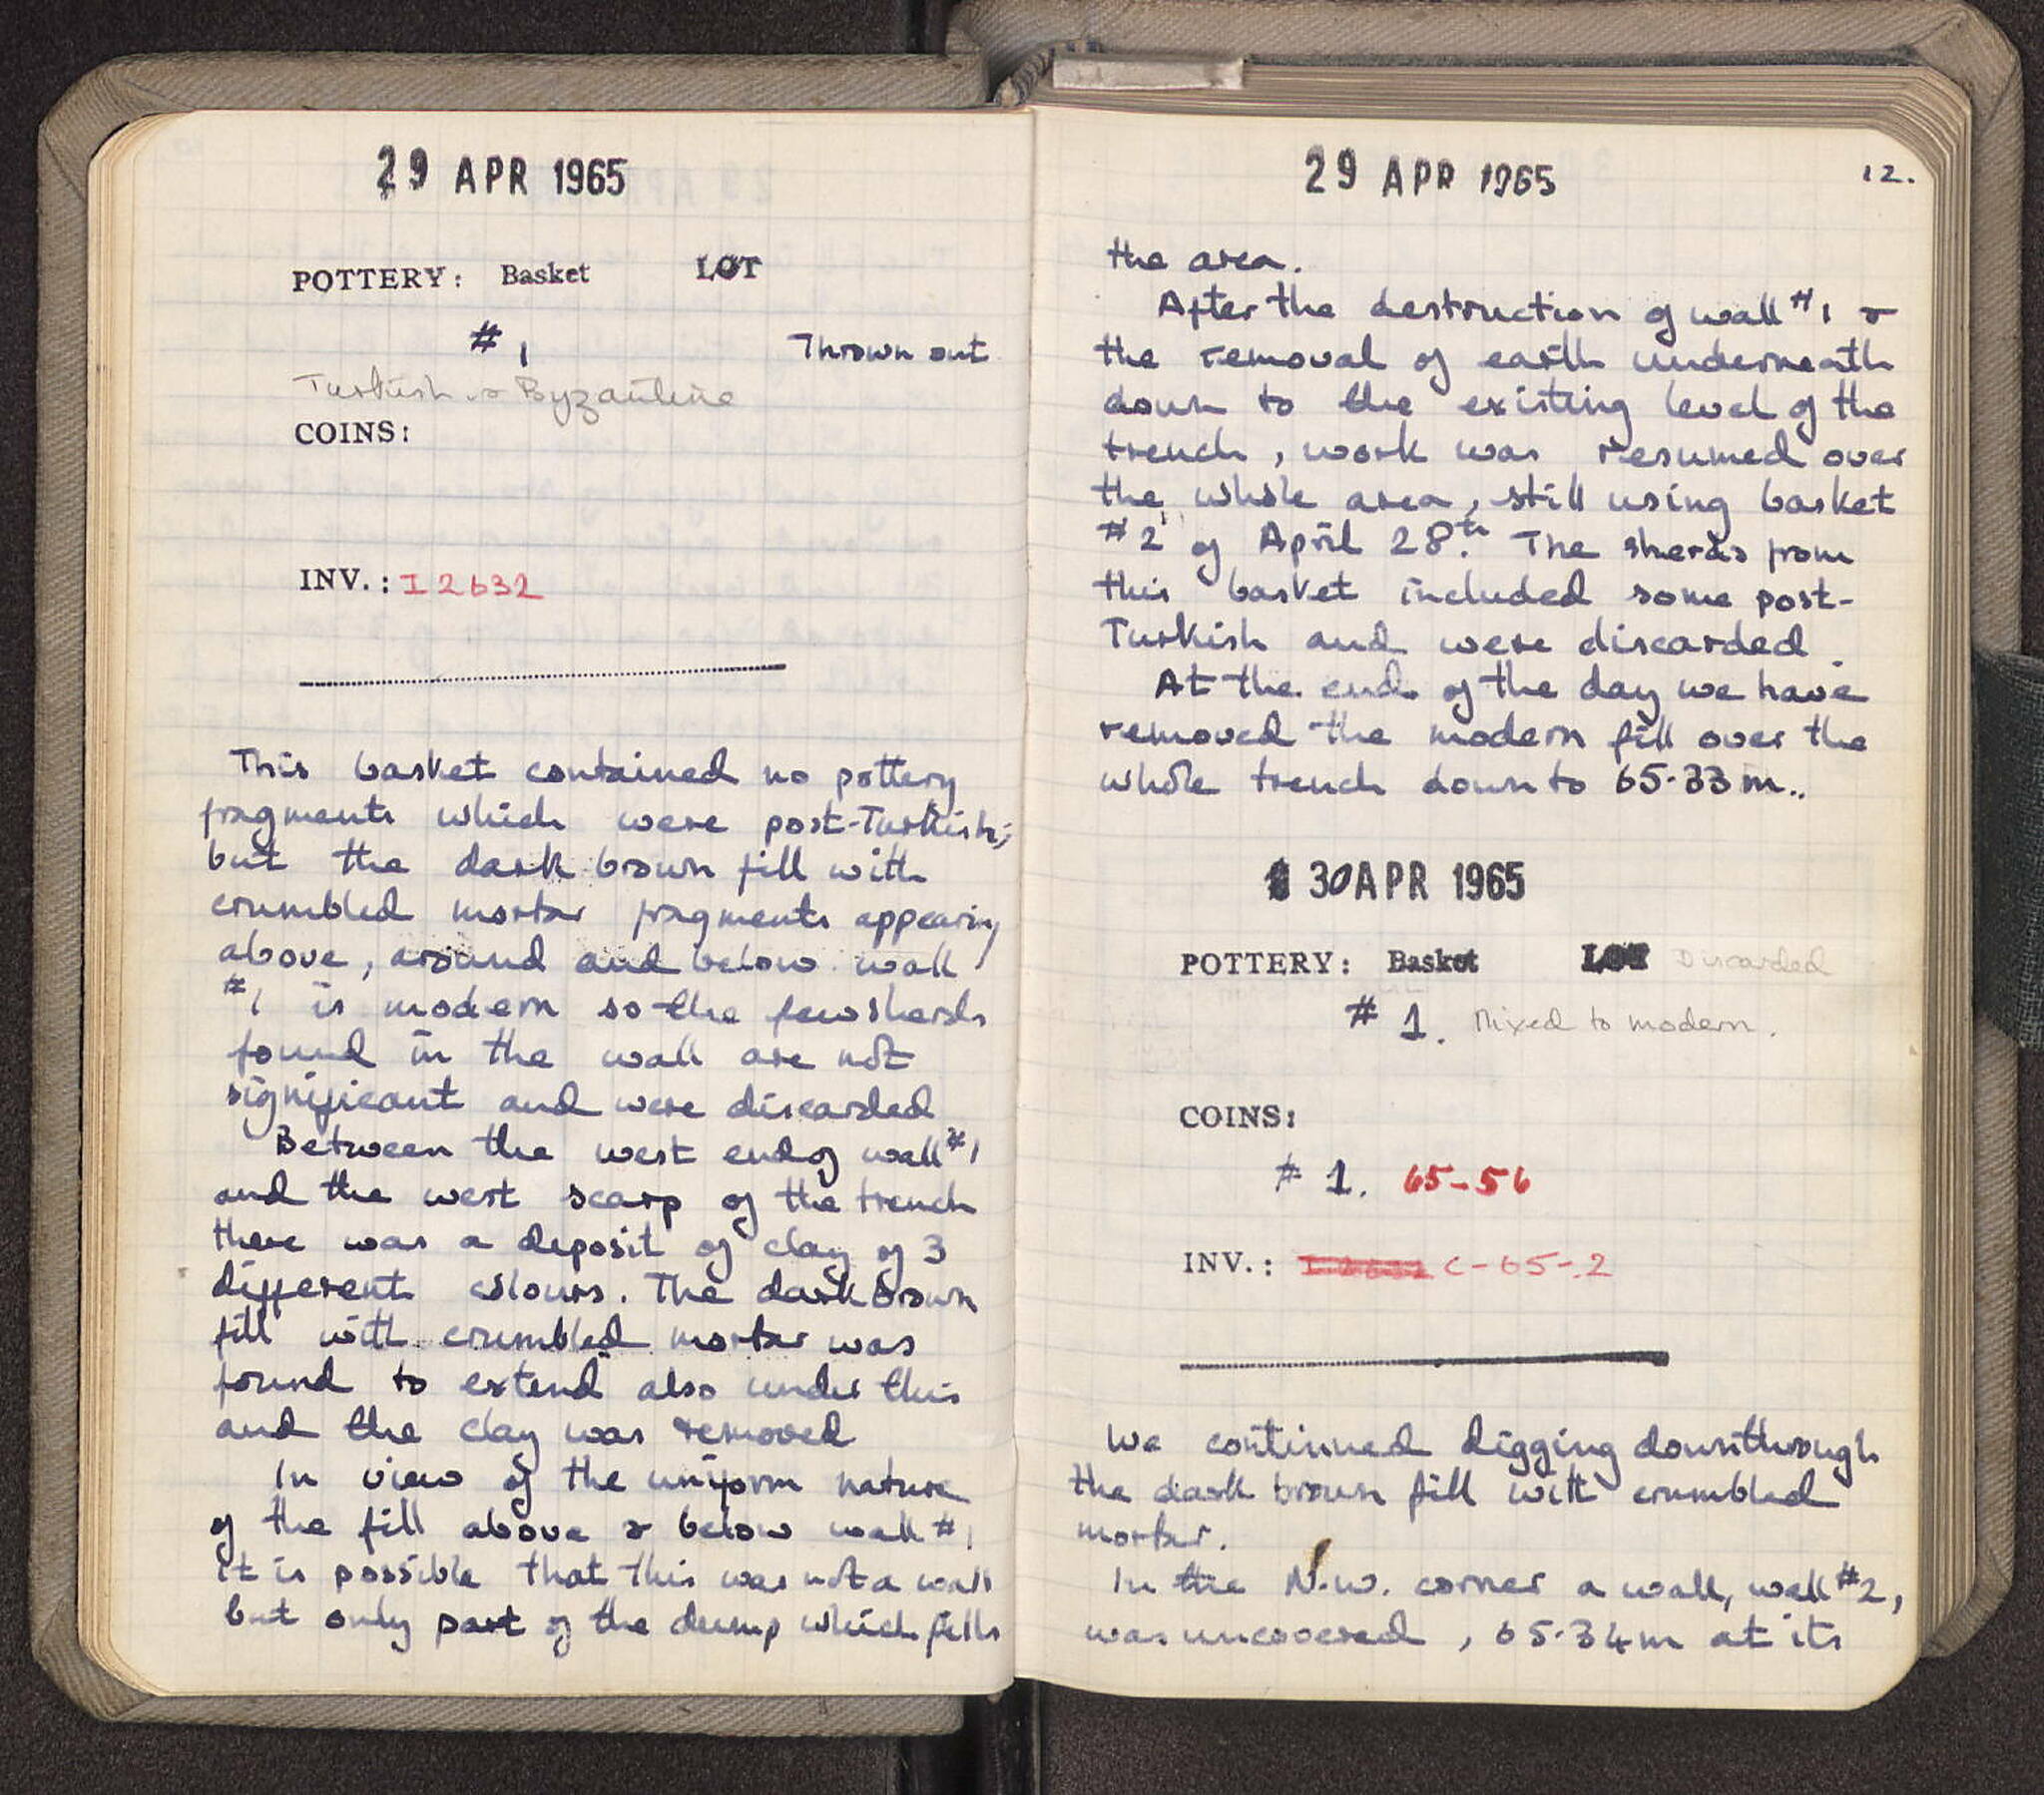 29 APR 1965
POTTERY: Basket LOT
#1 Thrown out
Turkish & Byzantine
COINS:
INV.: I 2632
This basket contained no pottery
fragments which were post-Turkish;
but the dark brown fill with
crumbled mortar fragments appearing
above, around and below wall
#1 is modern so the few sherds
found in the wall are not
significant and were discarded
Between the west end of wall #1
and the west scarp of the trench
there was a deposit of clay of 3
different colours. The dark brown
fill with crumbled mortar was
found to extend also under this
and the clay was removed
In view of the uniform nature
of the fill above & below wall #1
it is possible that this was not a wall
but only part of the dump which fills
29 APR 1965
12.
the area.
After the destruction of wall #1 &
the removal of earth underneath
down to the existing level of the
trench, work was resumed over
the whole area, still using basket
#2 of April 28th. The sherds from
this basket included some post-
Turkish and were discarded.
At the end of the day we have
removed the modern fill over the
whole trench down to 65.33m..
30 APR 1965
POTTERY: Basket LOT Discarded
#1. Mixed to modern.
COINS:
#1. 65-56
INV.: I 2632 C-65-2
We continued digging down through
the dark brown fill with crumbled
mortar.
In the N.W. corner a wall, wall #2,
was uncovered, 65.34m at its